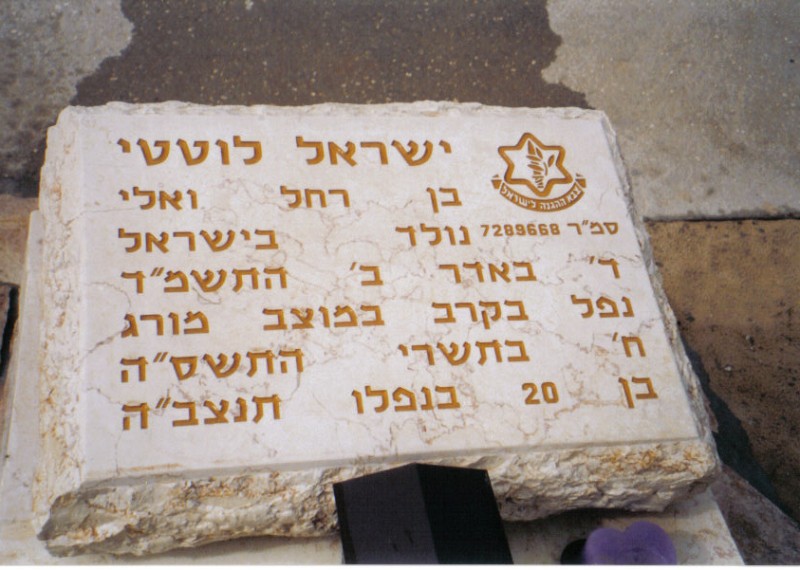 ישראל לוטטי
צבא ההגנה לישראל
בן רחל ואלי
סמ״ר 7289668 נולד בישראל
ד׳ באדר ב׳ התשמ״ד
נפל בקרב במוצב מורג
ח׳ בתשרי התשס״ה
בן 20 בנפלו תנצב״ה